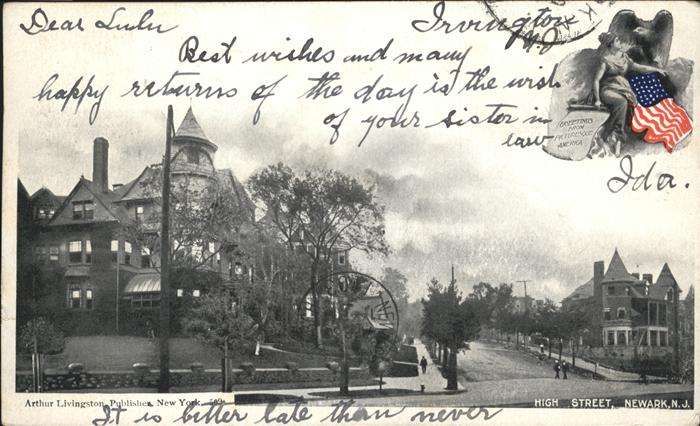 Dear Lulu
Irvington
N.J.
Best wishes and many
happy returns of the day is the wish
of your sister in
law
Ida.
GREETINGS
FROM
PICTURESQUE
AMERICA
Arthur Livingston, Publisher, New York.
HIGH STREET, NEWARK, N.J.
It is bitter late than never